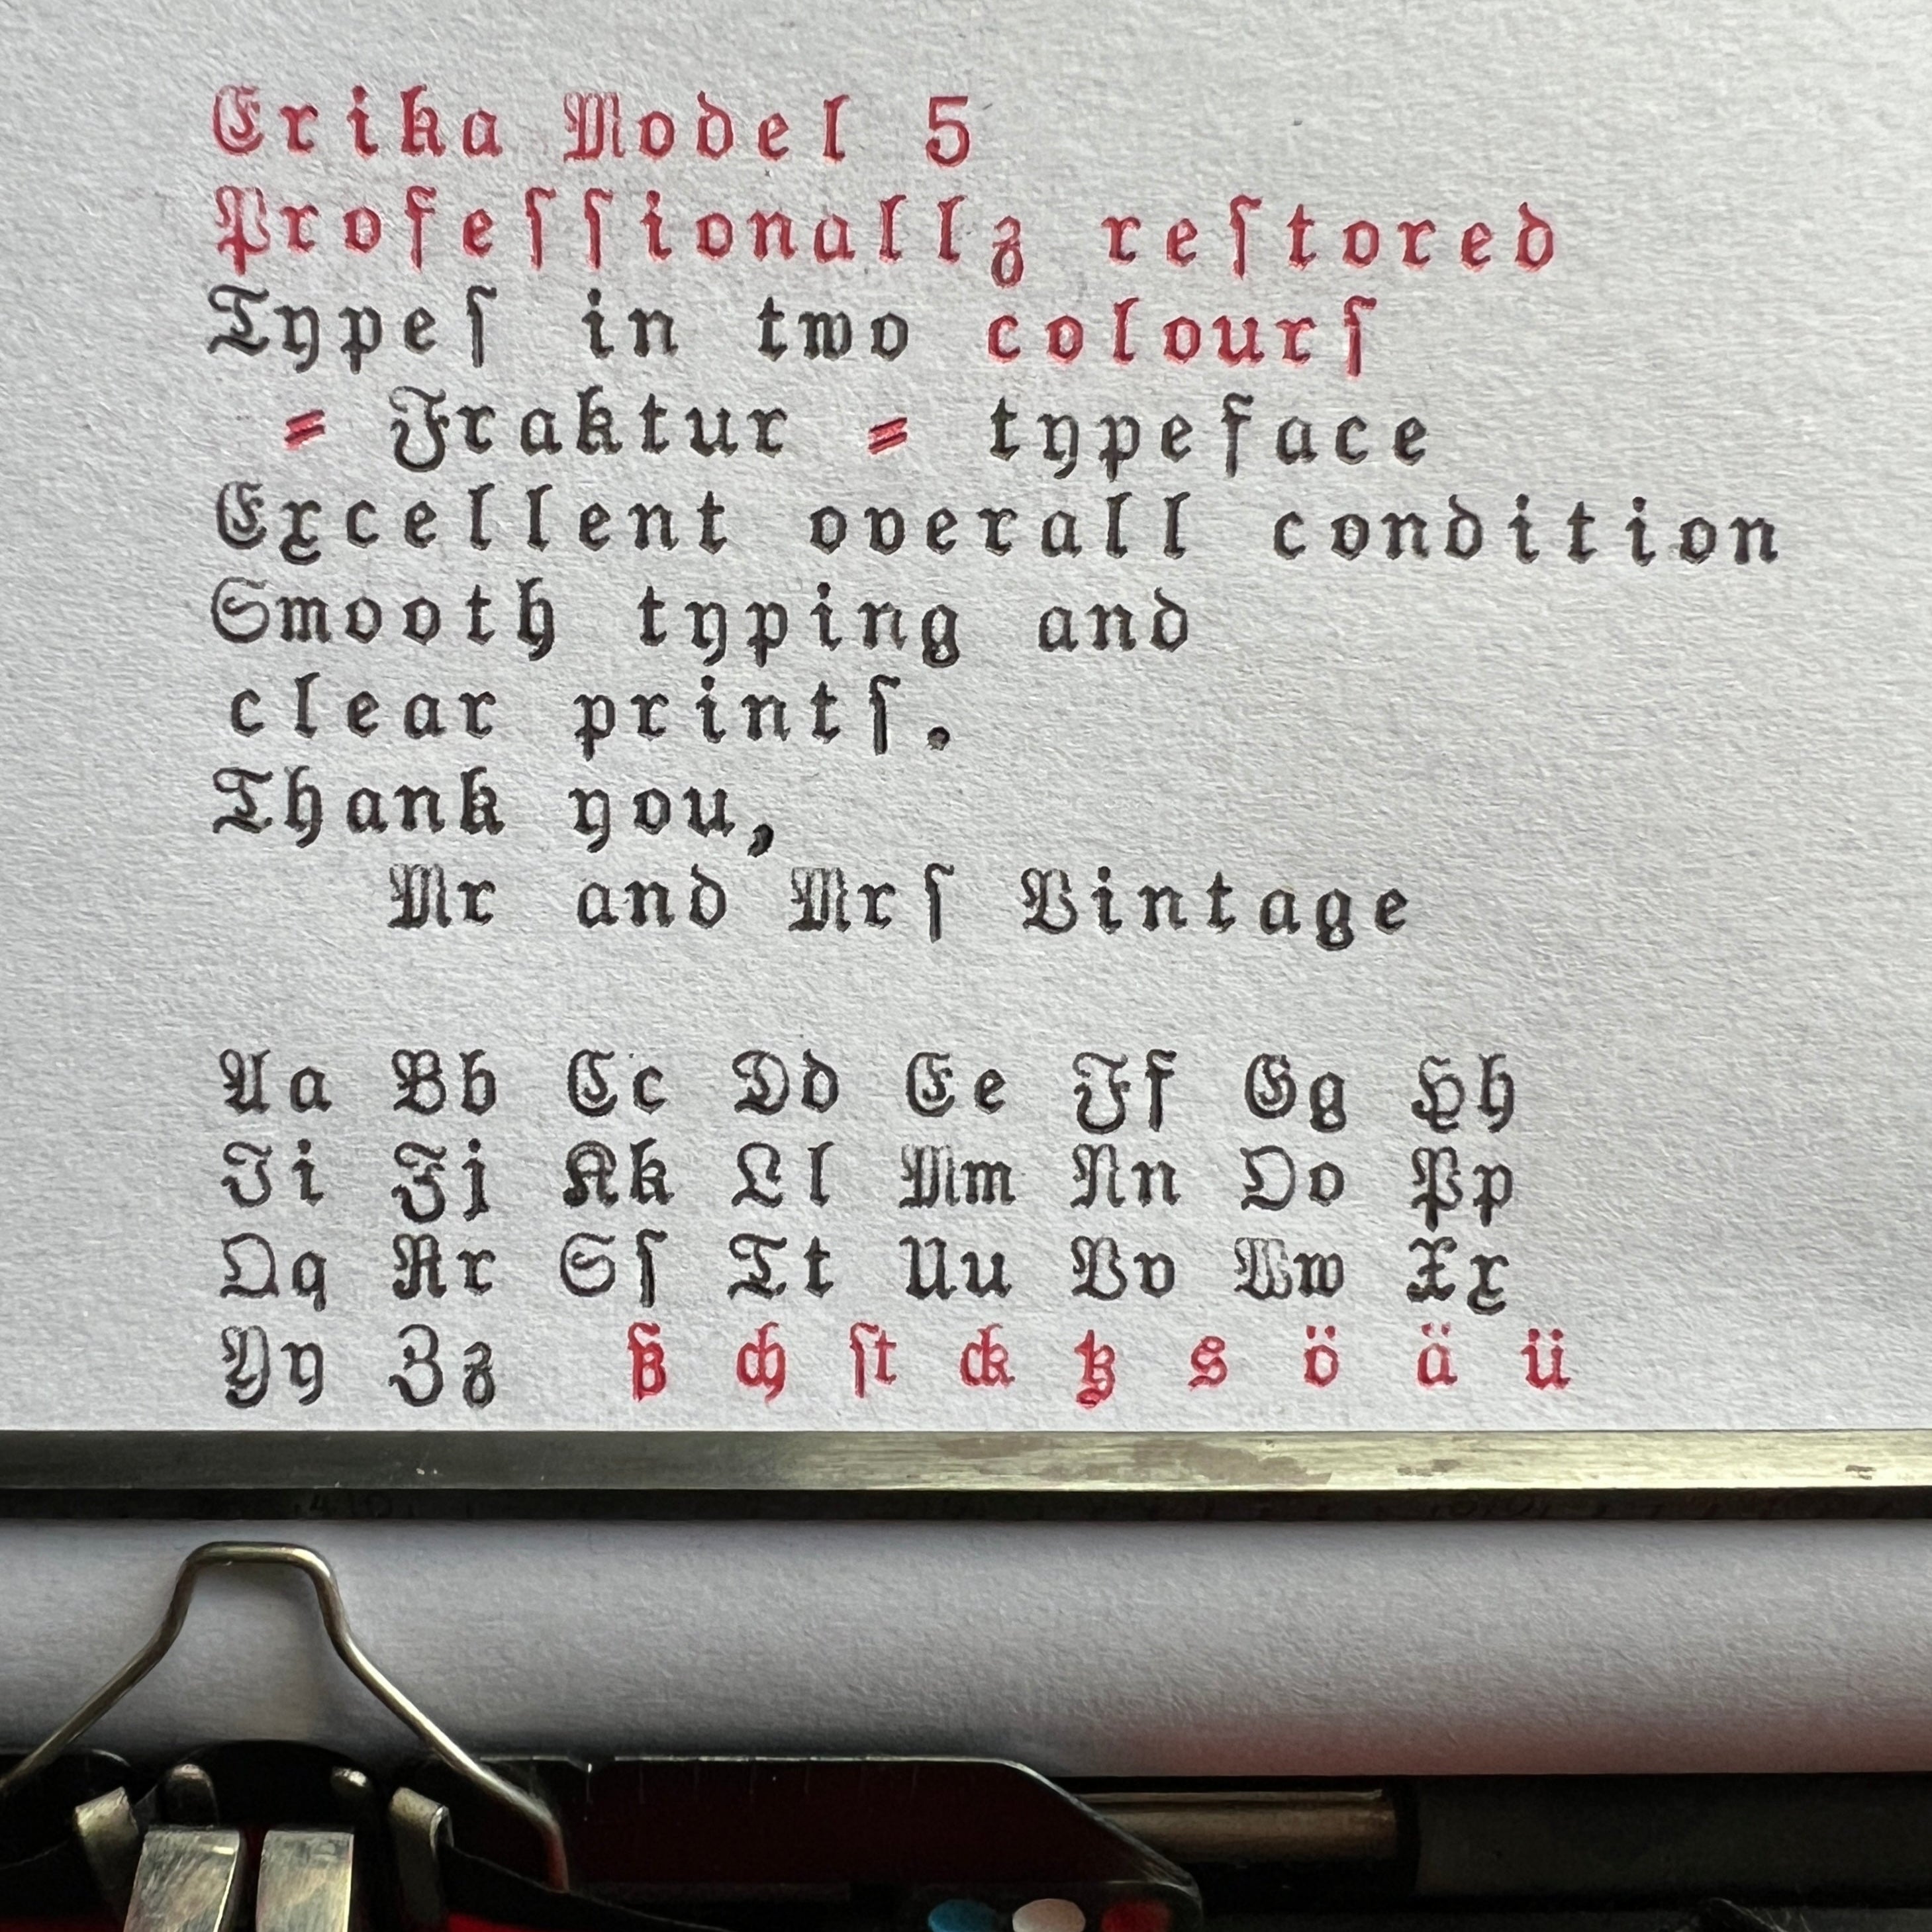 Erika Model 5
Profeſſionallz reſtored
Typeſ in two colourſ
= Fraktur = typeface
Excellent overall condition
Smooth typing and
clear printſ.
Thank you,
Mr and Mrſ Vintage
Aa Bb Cc Dd Ee Ff Gg Hh
Ii Jj Kk Ll Mm Nn Oo Pp
Qq Rr Sſ Tt Uu Vv Ww Xx
Yy Zz ß ch ſt ck tz s ö ä ü